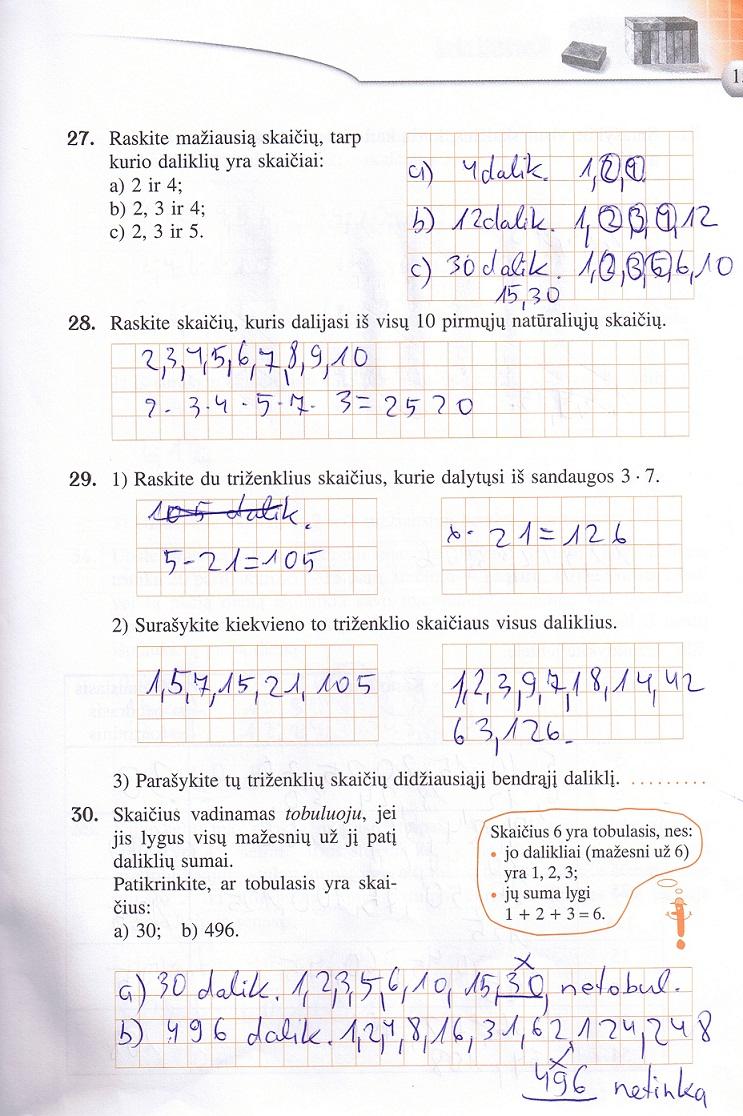 1
27. Raskite mažiausią skaičių, tarp
kurio daliklių yra skaičiai:
a) 2 ir 4;
b) 2, 3 ir 4;
c) 2, 3 ir 5.
a) 4 dalik. 1, 2, 4.
b) 12 dalik. 1, 2, 3, 4, 12
c) 30 dalik. 1, 2, 3, 5, 6, 10
15, 30
28. Raskite skaičių, kuris dalijasi iš visų 10 pirmųjų natūraliųjų skaičių.
2, 3, 4, 5, 6, 7, 8, 9, 10
2 · 3 · 4 · 5 · 7 · 3 = 2520
29. 1) Raskite du triženklius skaičius, kurie dalytųsi iš sandaugos 3 · 7.
105 dalik.
5 - 21 = 105
6 · 21 = 126
2) Surašykite kiekvieno to triženklio skaičiaus visus daliklius.
1, 5, 7, 15, 21, 105
1, 2, 3, 9, 7, 18, 14, 42
63, 126.
3) Parašykite tų triženklių skaičių didžiausiąjį bendrąjį daliklį. .........
30. Skaičius vadinamas tobuluoju, jei
jis lygus visų mažesnių už jį patį
daliklių sumai.
Patikrinkite, ar tobulasis yra skai-
čius:
a) 30; b) 496.
Skaičius 6 yra tobulasis, nes:
• jo dalikliai (mažesni už 6)
yra 1, 2, 3;
• jų suma lygi
1 + 2 + 3 = 6.
x
a) 30 dalik. 1, 2, 3, 5, 6, 10, 15, 30, netobul.
b) 496 dalik. 1, 2, 4, 8, 16, 31, 62, 124, 248
x
496 netinka